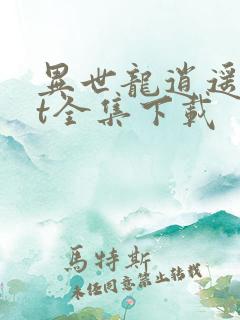 異世龍逍遥
t全集下載
馬特斯
未经同意禁止转载